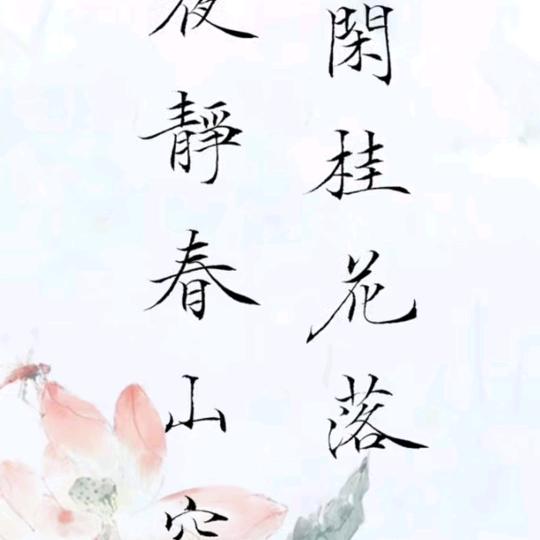 閑桂花落
夜靜春山空